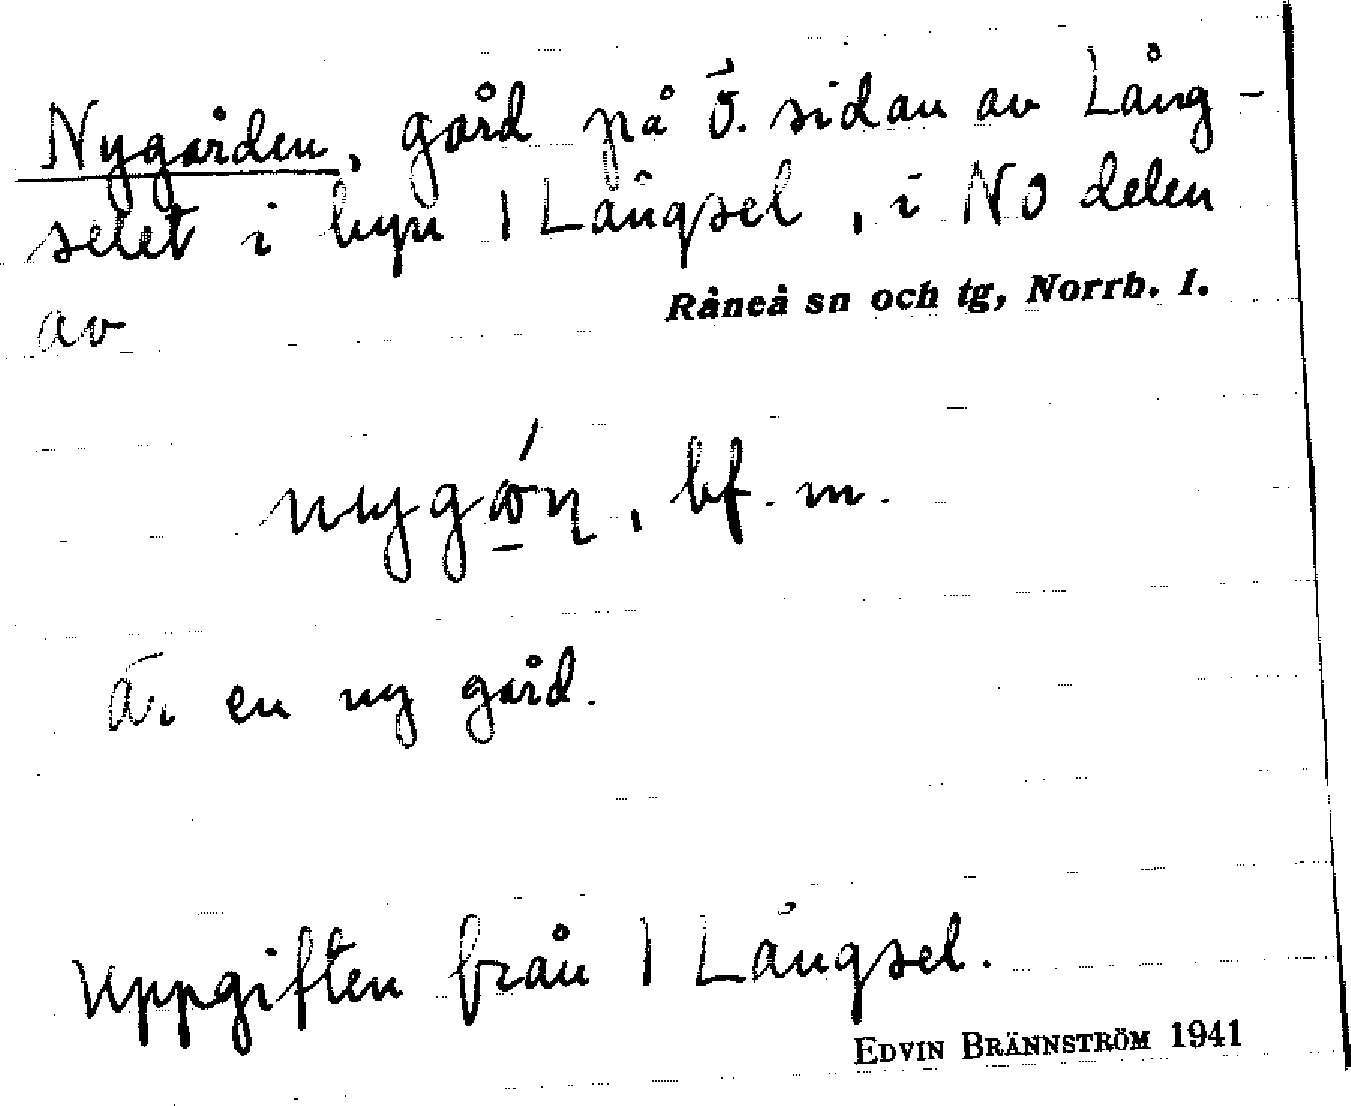 Nygården, gård på ö. sidan av Lång-
selet i byn 1 Långsel, i NO delen
av
Råneå sn och tg, Norrb. l.
bf. m.
Är en ny gård.
Uppgiften från 1 Långsel.
EDVIN BRÄNNSTRÖM 1941